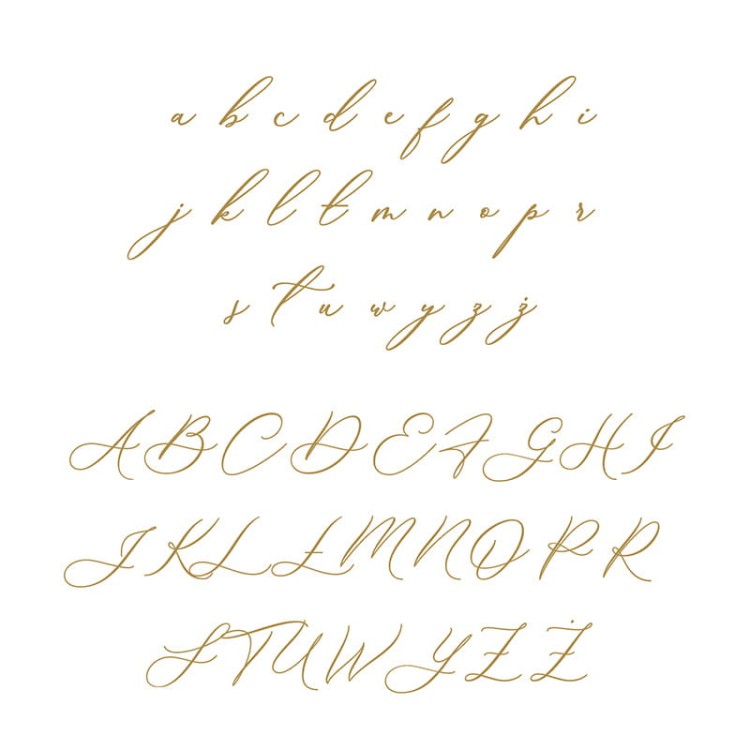 a b c d e f g h i
j k l ł m n o p r
s t u w y z ż
A B C D E F G H I
J K L Ł M N O P R
S T U W Y Z Ż